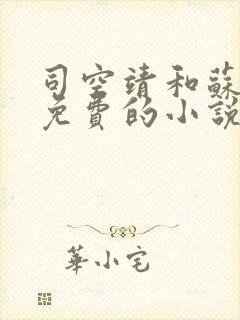 司空靖和蘇
免費的小說
華小宅